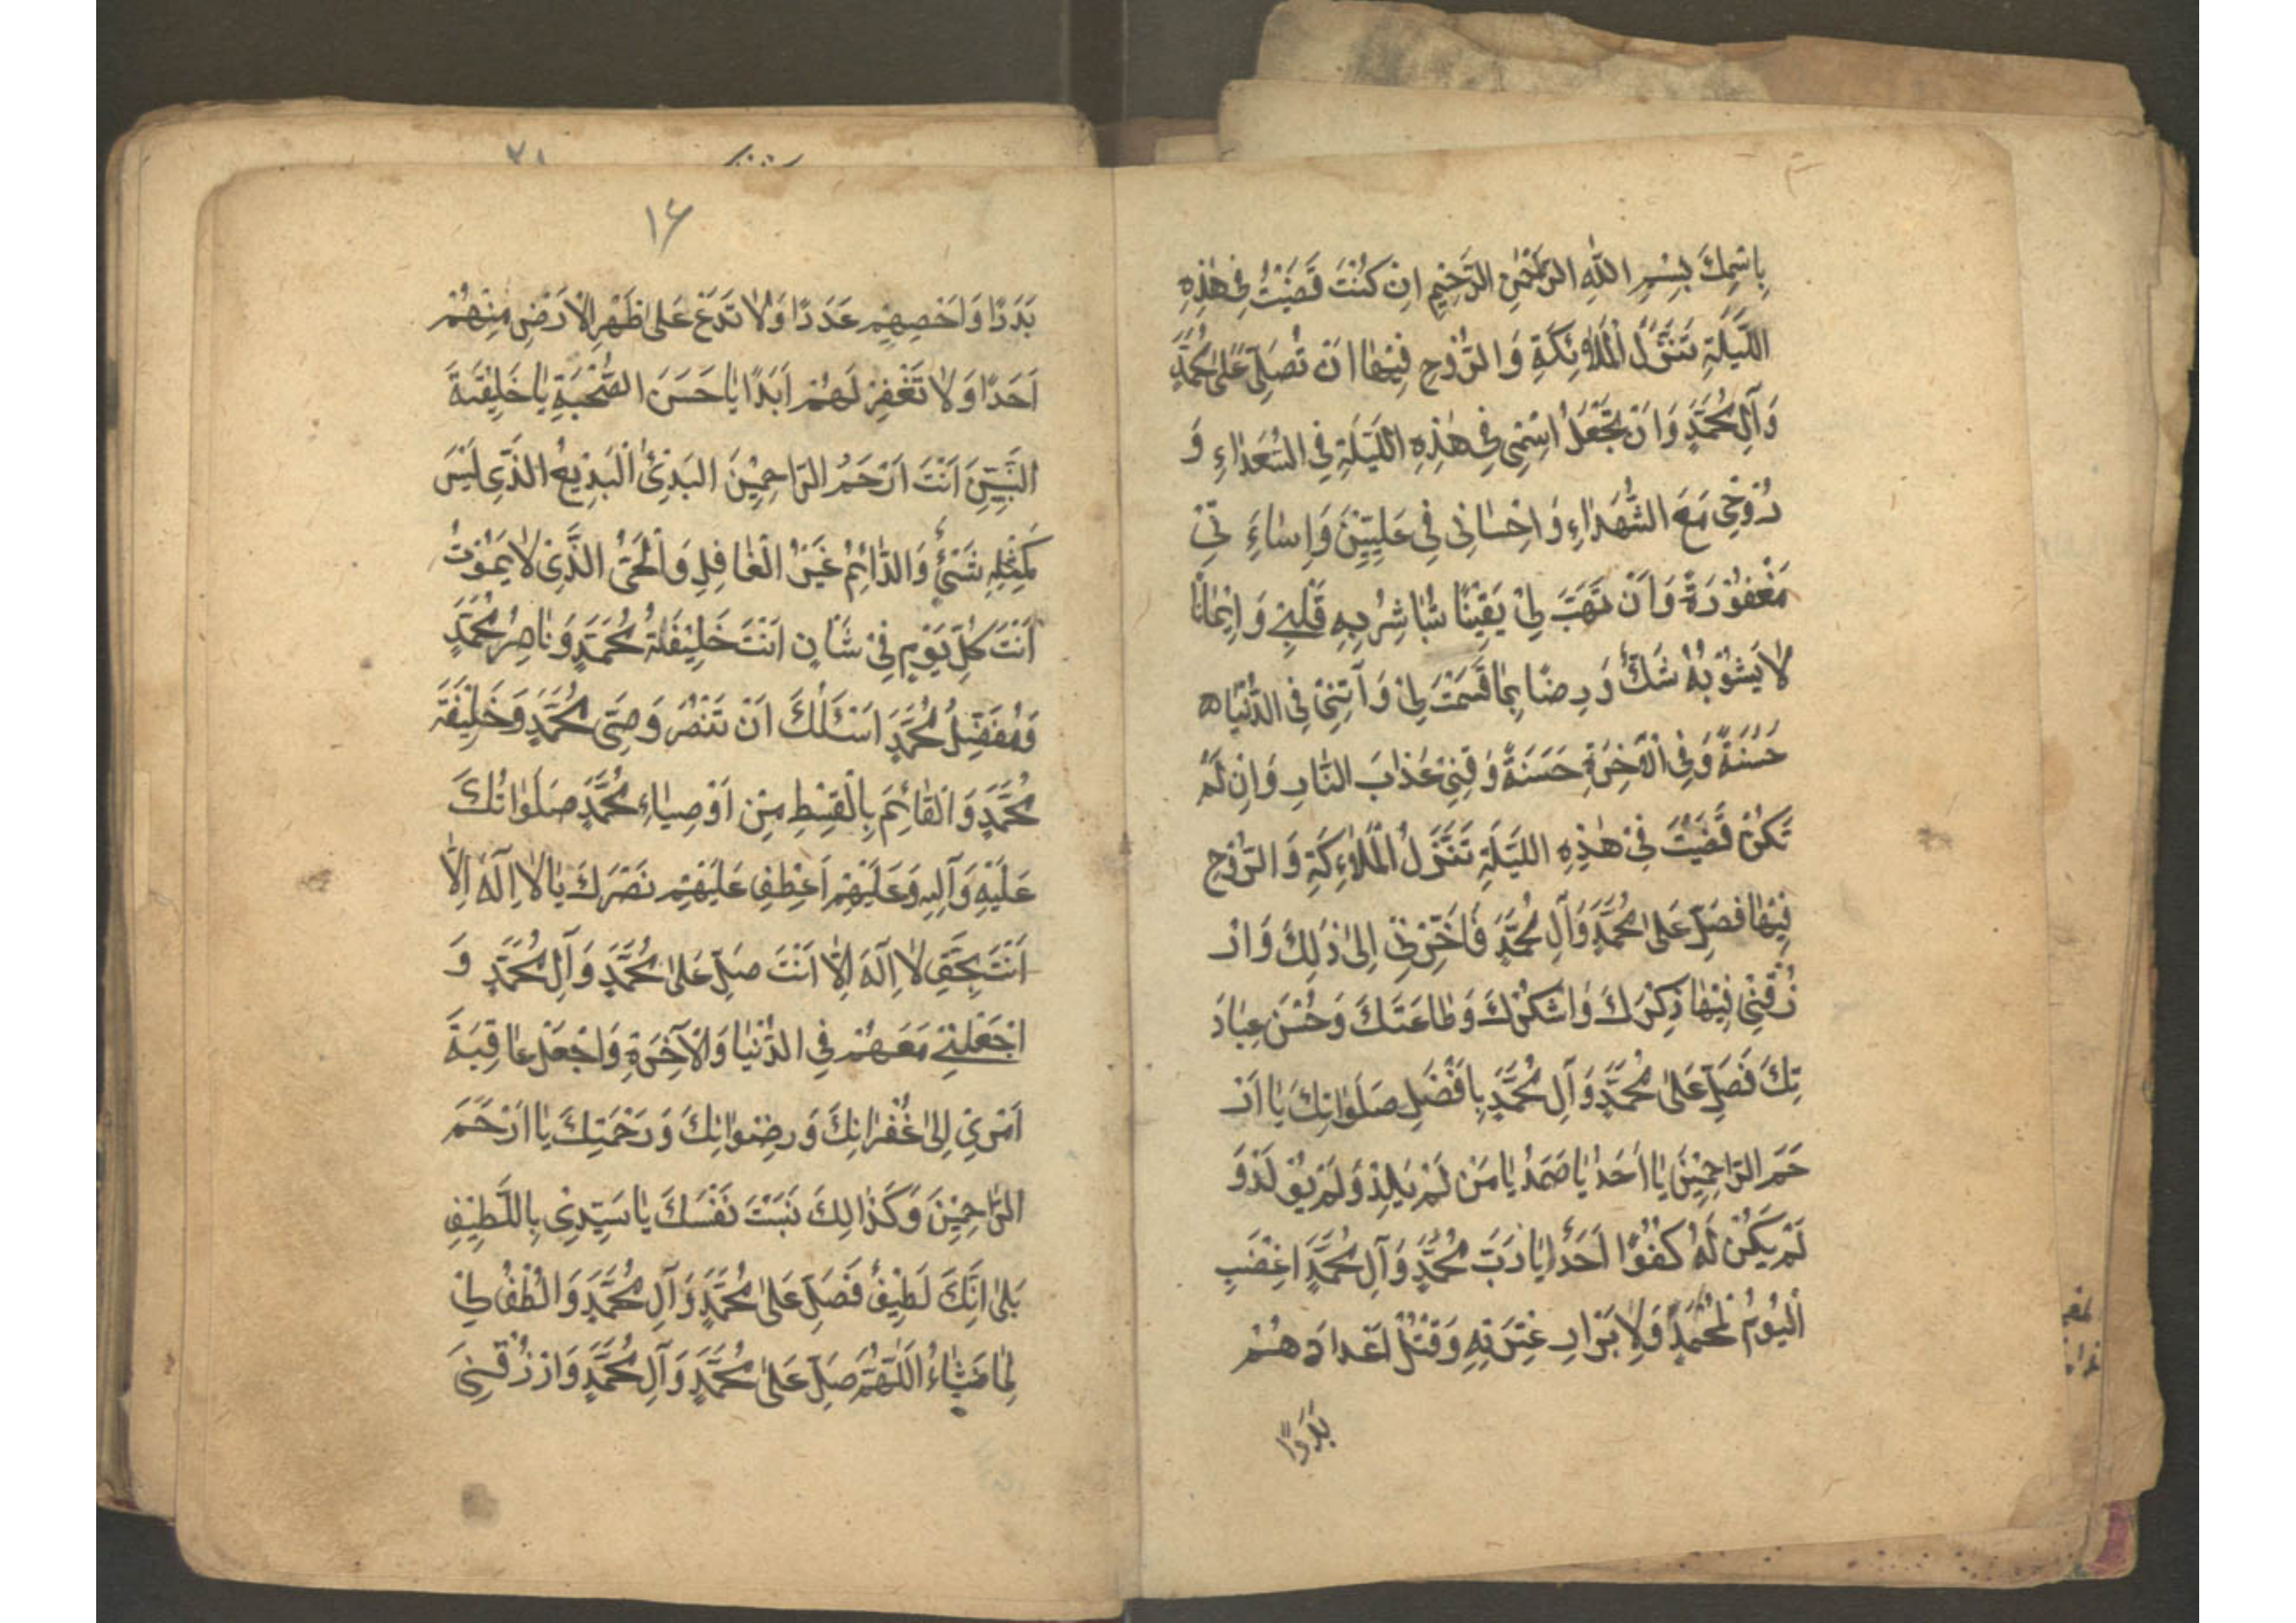 بِاسْمِكَ بِسْمِ اللّٰهِ الرَّحْمٰنِ الرَّحِيْمِ اِنْ كُنْتَ قَضَيْتَ فِيْ هٰذِهِ
اللَّيْلَةِ تَنَزُّلَ الْمَلاٰئِكَةِ وَ الرُّوْحِ فِيْهٰا اَنْ تُصَلِّيَ عَلىٰ مُحَمَّدٍ
وَآلِ مُحَمَّدٍ وَاَنْ تَجْعَلَ اسْمِيْ فِيْ هٰذِهِ اللَّيْلَةِ فِي السُّعَدٰاءِ وَ
رُوْحِيْ مَعَ الشُّهَدٰاءِ وَ اِحْسٰانِيْ فِيْ عَلِيِّيْنَ وَ اِسٰاءَ تِيْ
مَغْفُوْرَةً وَ اَنْ تَهَبَ لِيْ يَقِيْنًا تُبٰاشِرُ بِهِ قَلْبِيْ وَ اِيْمٰانًا
لاٰ يَشُوْبُهُ شَكٌّ وَ رِضًا بِمٰا قَسَمْتَ لِيْ وَ آتِنِيْ فِي الدُّنْيٰا
حَسَنَةً وَ فِي الْآخِرَةِ حَسَنَةً وَ قِنِيْ عَذٰابَ النّٰارِ وَ اِنْ لَمْ
تَكُنْ قَضَيْتَ فِيْ هٰذِهِ اللَّيْلَةِ تَنَزُّلَ الْمَلاٰءِكَةِ وَ الرُّوْحِ
فِيْهٰا فَصَلِّ عَلىٰ مُحَمَّدٍ وَآلِ مُحَمَّدٍ فَاَخِّرْنِيْ اِلىٰ ذٰلِكَ وَ ارْ
زُقْنِيْ فِيْهٰا ذِكْرَكَ وَ اشْكُرَكَ وَ طٰاعَتَكَ وَ حُسْنَ عِبٰادَ
تِكَ فَصَلِّ عَلىٰ مُحَمَّدٍ وَ آلِ مُحَمَّدٍ بِاَفْضَلِ صَلَوٰاتِكَ يٰا اَرْ
حَمَ الرّٰاحِمِيْنَ يٰا اَحَدُ يٰا صَمَدُ يٰا مَنْ لَمْ يَلِدْ وَ لَمْ يُوْلَدْ وَ
لَمْ يَكُنْ لَهُ كُفُوًا اَحَدٌ يٰا رَبَّ مُحَمَّدٍ وَ آلِ مُحَمَّدٍ اغْضَبِ
الْيَوْمَ لِمُحَمَّدٍ وَ لِاَ بْرٰارِ عِتْرَتِهِ وَ قْتُلْ اَعْدٰاءَ هُمْ
بَدَدًا
۱۶
بَدَدًا وَ اَحْصِهِمْ عَدَدًا وَ لاٰ تَدَعْ عَلىٰ ظَهْرِ الْاَرْضِ مِنْهُمْ
اَحَدًا وَ لاٰ تَغْفِرْ لَهُمْ اَبَدًا يٰا حَسَنَ الصُّحْبَةِ يٰا خَلِيْفَةَ
النَّبِيِّيْنَ اَنْتَ اَرْحَمُ الرّٰاحِمِيْنَ الْبَدِيْءُ الْبَدِيْعُ الَّذِيْ لَيْسَ
كَمِثْلِهِ شَيْءٌ وَ الدّٰائِمُ غَيْرُ الْغٰافِلِ وَ الْحَيُّ الَّذِيْ لاٰ يَمُوْتُ
اَنْتَ كُلَّ يَوْمٍ فِيْ شَأْنٍ اَنْتَ خَلِيْفَةُ مُحَمَّدٍ وَ نٰاصِرُ مُحَمَّدٍ
وَ مُفَضِّلُ مُحَمَّدٍ اَسْئَلُكَ اَنْ تَنْصُرَ وَصِيَّ مُحَمَّدٍ وَ خَلِيْفَةَ
مُحَمَّدٍ وَ الْقٰائِمَ بِالْقِسْطِ مِنْ اَوْصِيٰاءِ مُحَمَّدٍ صَلَوٰاتُكَ
عَلَيْهِ وَ آلِهِ وَ عَلَيْهِمْ اَعْطِفْ عَلَيْهِمْ نَصْرَكَ يٰا لاٰ اِلٰهَ اِلاّٰ
اَنْتَ بِحَقِّ لاٰ اِلٰهَ اِلاّٰ اَنْتَ صَلِّ عَلىٰ مُحَمَّدٍ وَ آلِ مُحَمَّدٍ وَ
اجْعَلْنِيْ مَعَهُمْ فِي الدُّنْيٰا وَ الْآخِرَةِ وَ اجْعَلْ عٰاقِبَةَ
اَمْرِيْ اِلىٰ غُفْرٰانِكَ وَ رِضْوٰانِكَ وَ رَحْمَتِكَ يٰا اَرْحَمَ
الرّٰاحِمِيْنَ وَ كَذٰالِكَ نَسَبْتَ نَفْسَكَ يٰا سَيِّدِيْ بِاللَّطِيْفِ
بَلىٰ اِنَّكَ لَطِيْفٌ فَصَلِّ عَلىٰ مُحَمَّدٍ وَ آلِ مُحَمَّدٍ وَ الْطُفْ لِيْ
لِمٰا تَشٰاءُ اَللّٰهُمَّ صَلِّ عَلىٰ مُحَمَّدٍ وَ آلِ مُحَمَّدٍ وَ ارْزُقْنِيَ